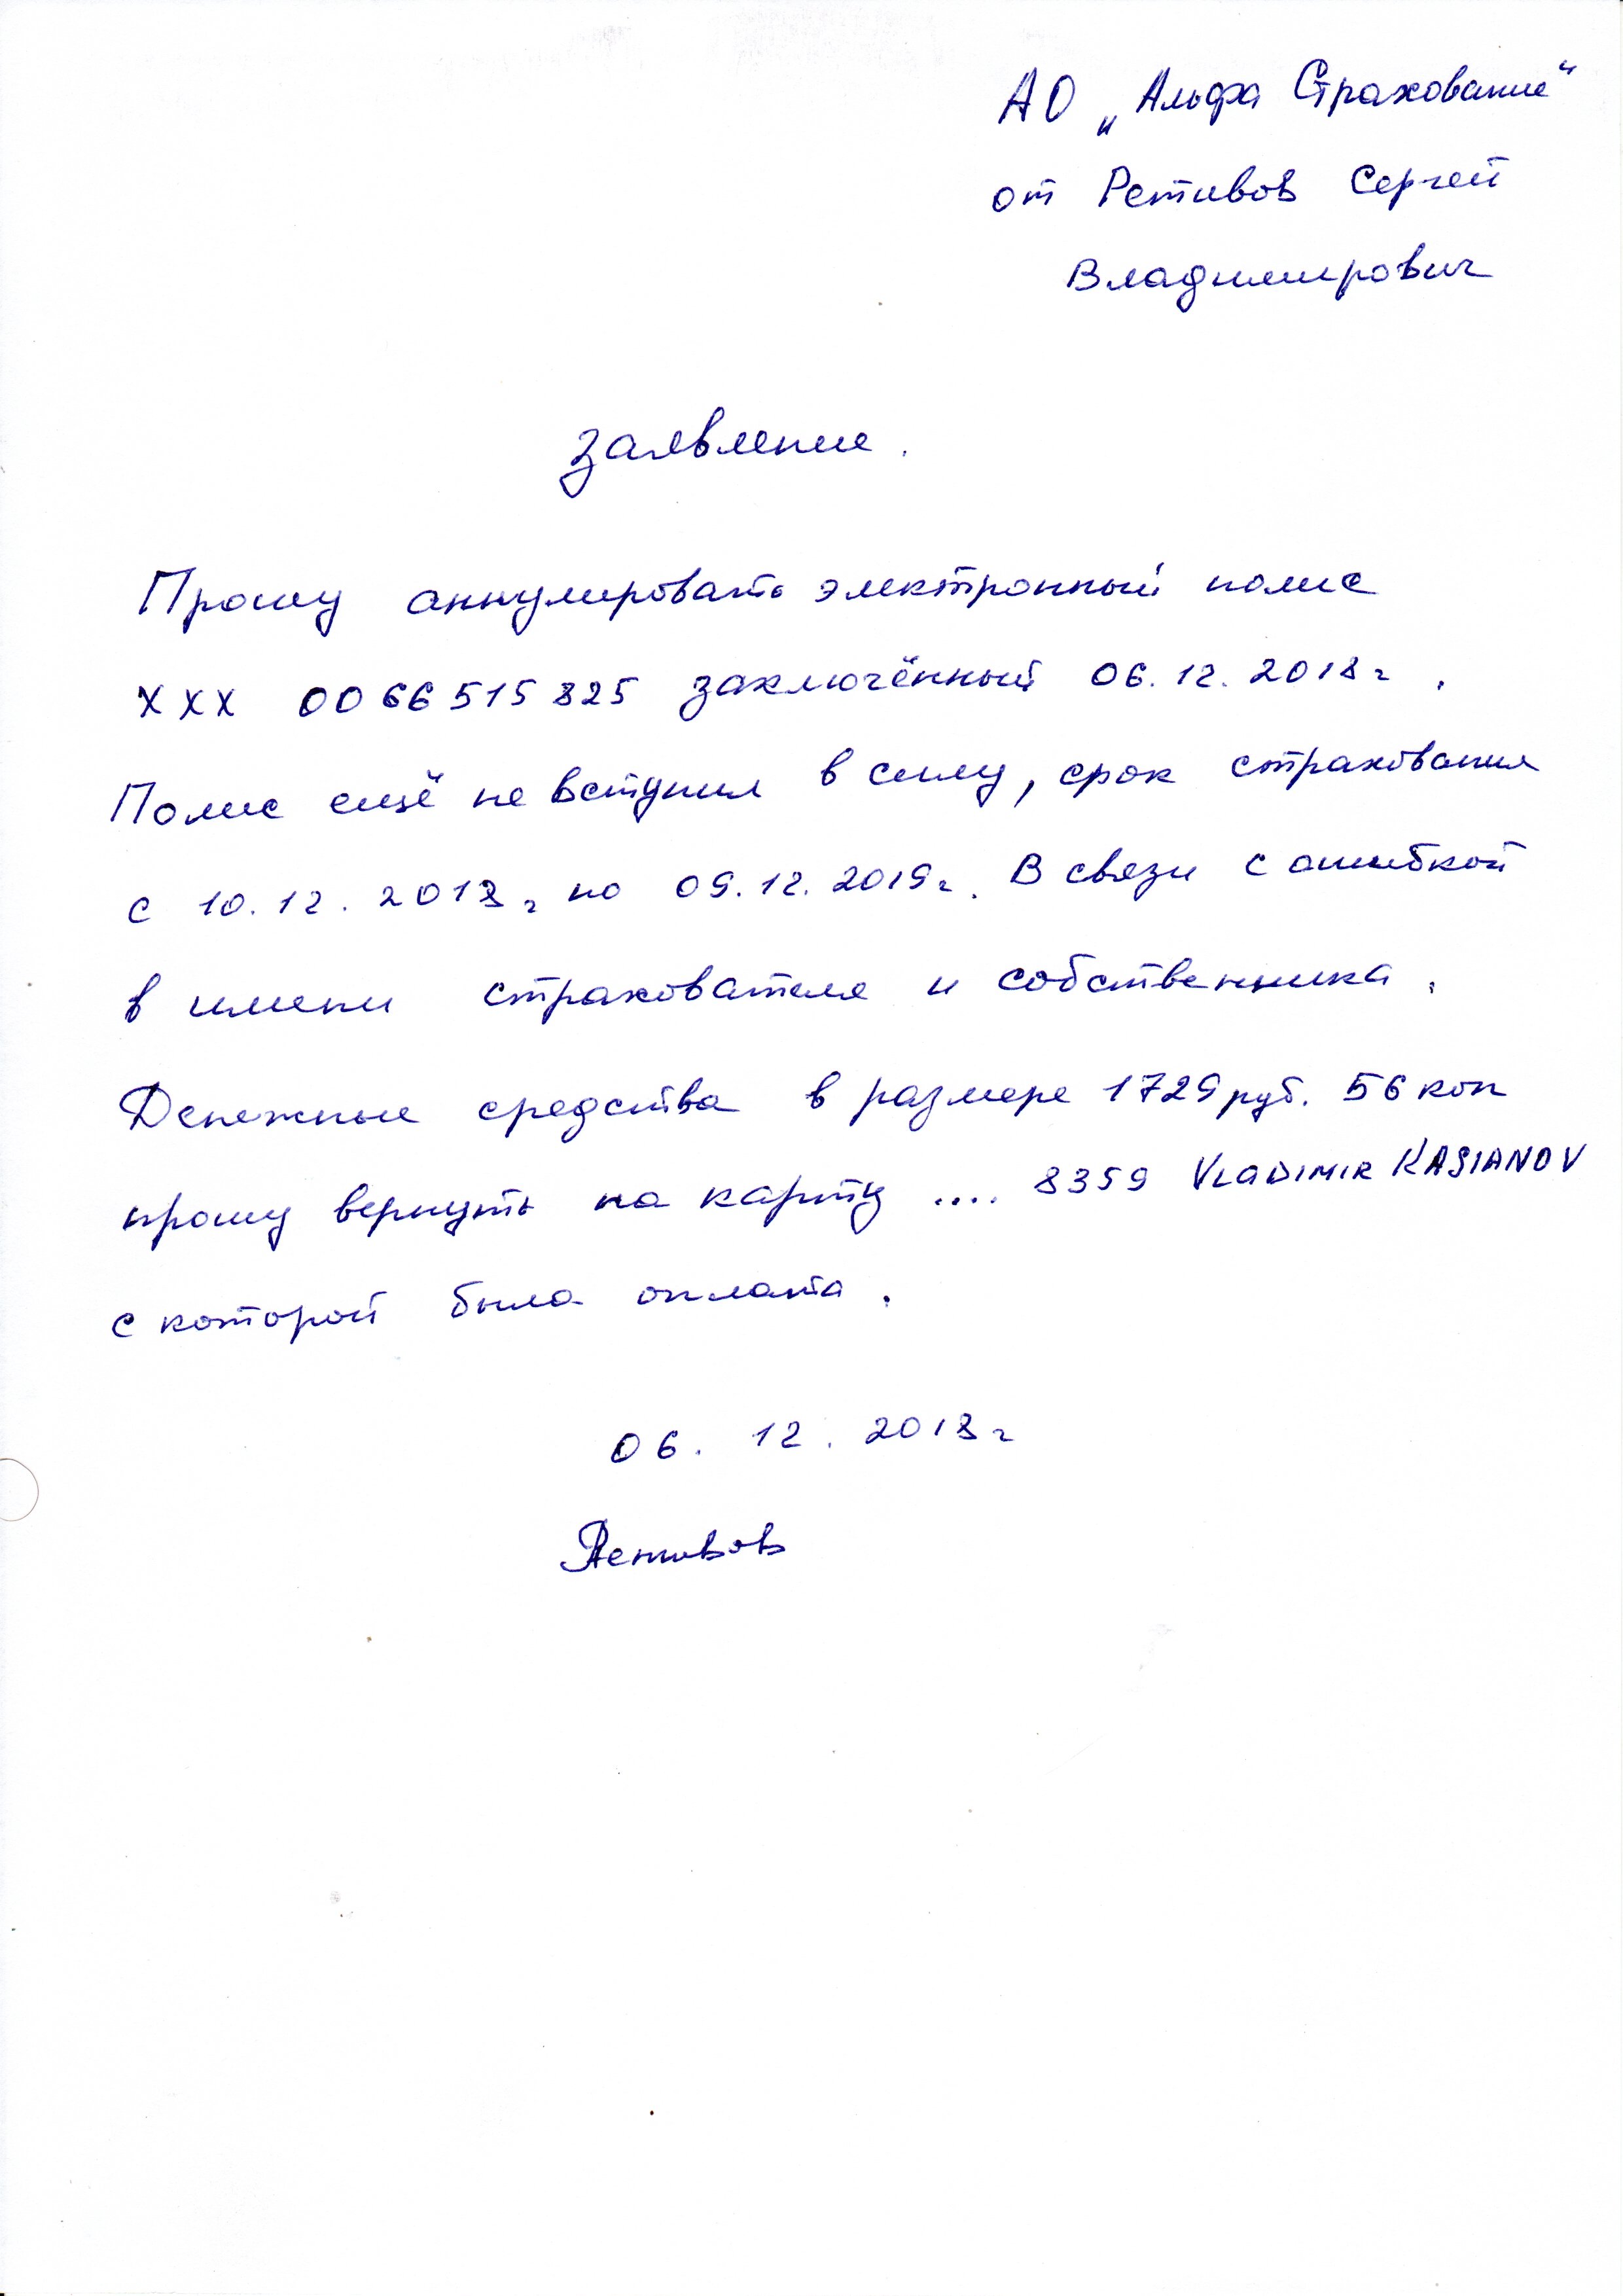 АО „Альфа Страхование“
от Ретивов Сергей
Владимирович
заявление.
Прошу аннулировать электронный полис
ХХХ 0066515825 заключённый 06.12.2018г.
Полис ещё не вступил в силу, срок страхования
с 10.12.2018г по 09.12.2019г. В связи с ошибкой
в имени страхователя и собственника.
Денежные средства в размере 1729 руб. 56 коп
прошу вернуть на карту .... 8359 VLADIMIR KASIANOV
с которой была оплата.
06.12.2018г
Ретивов